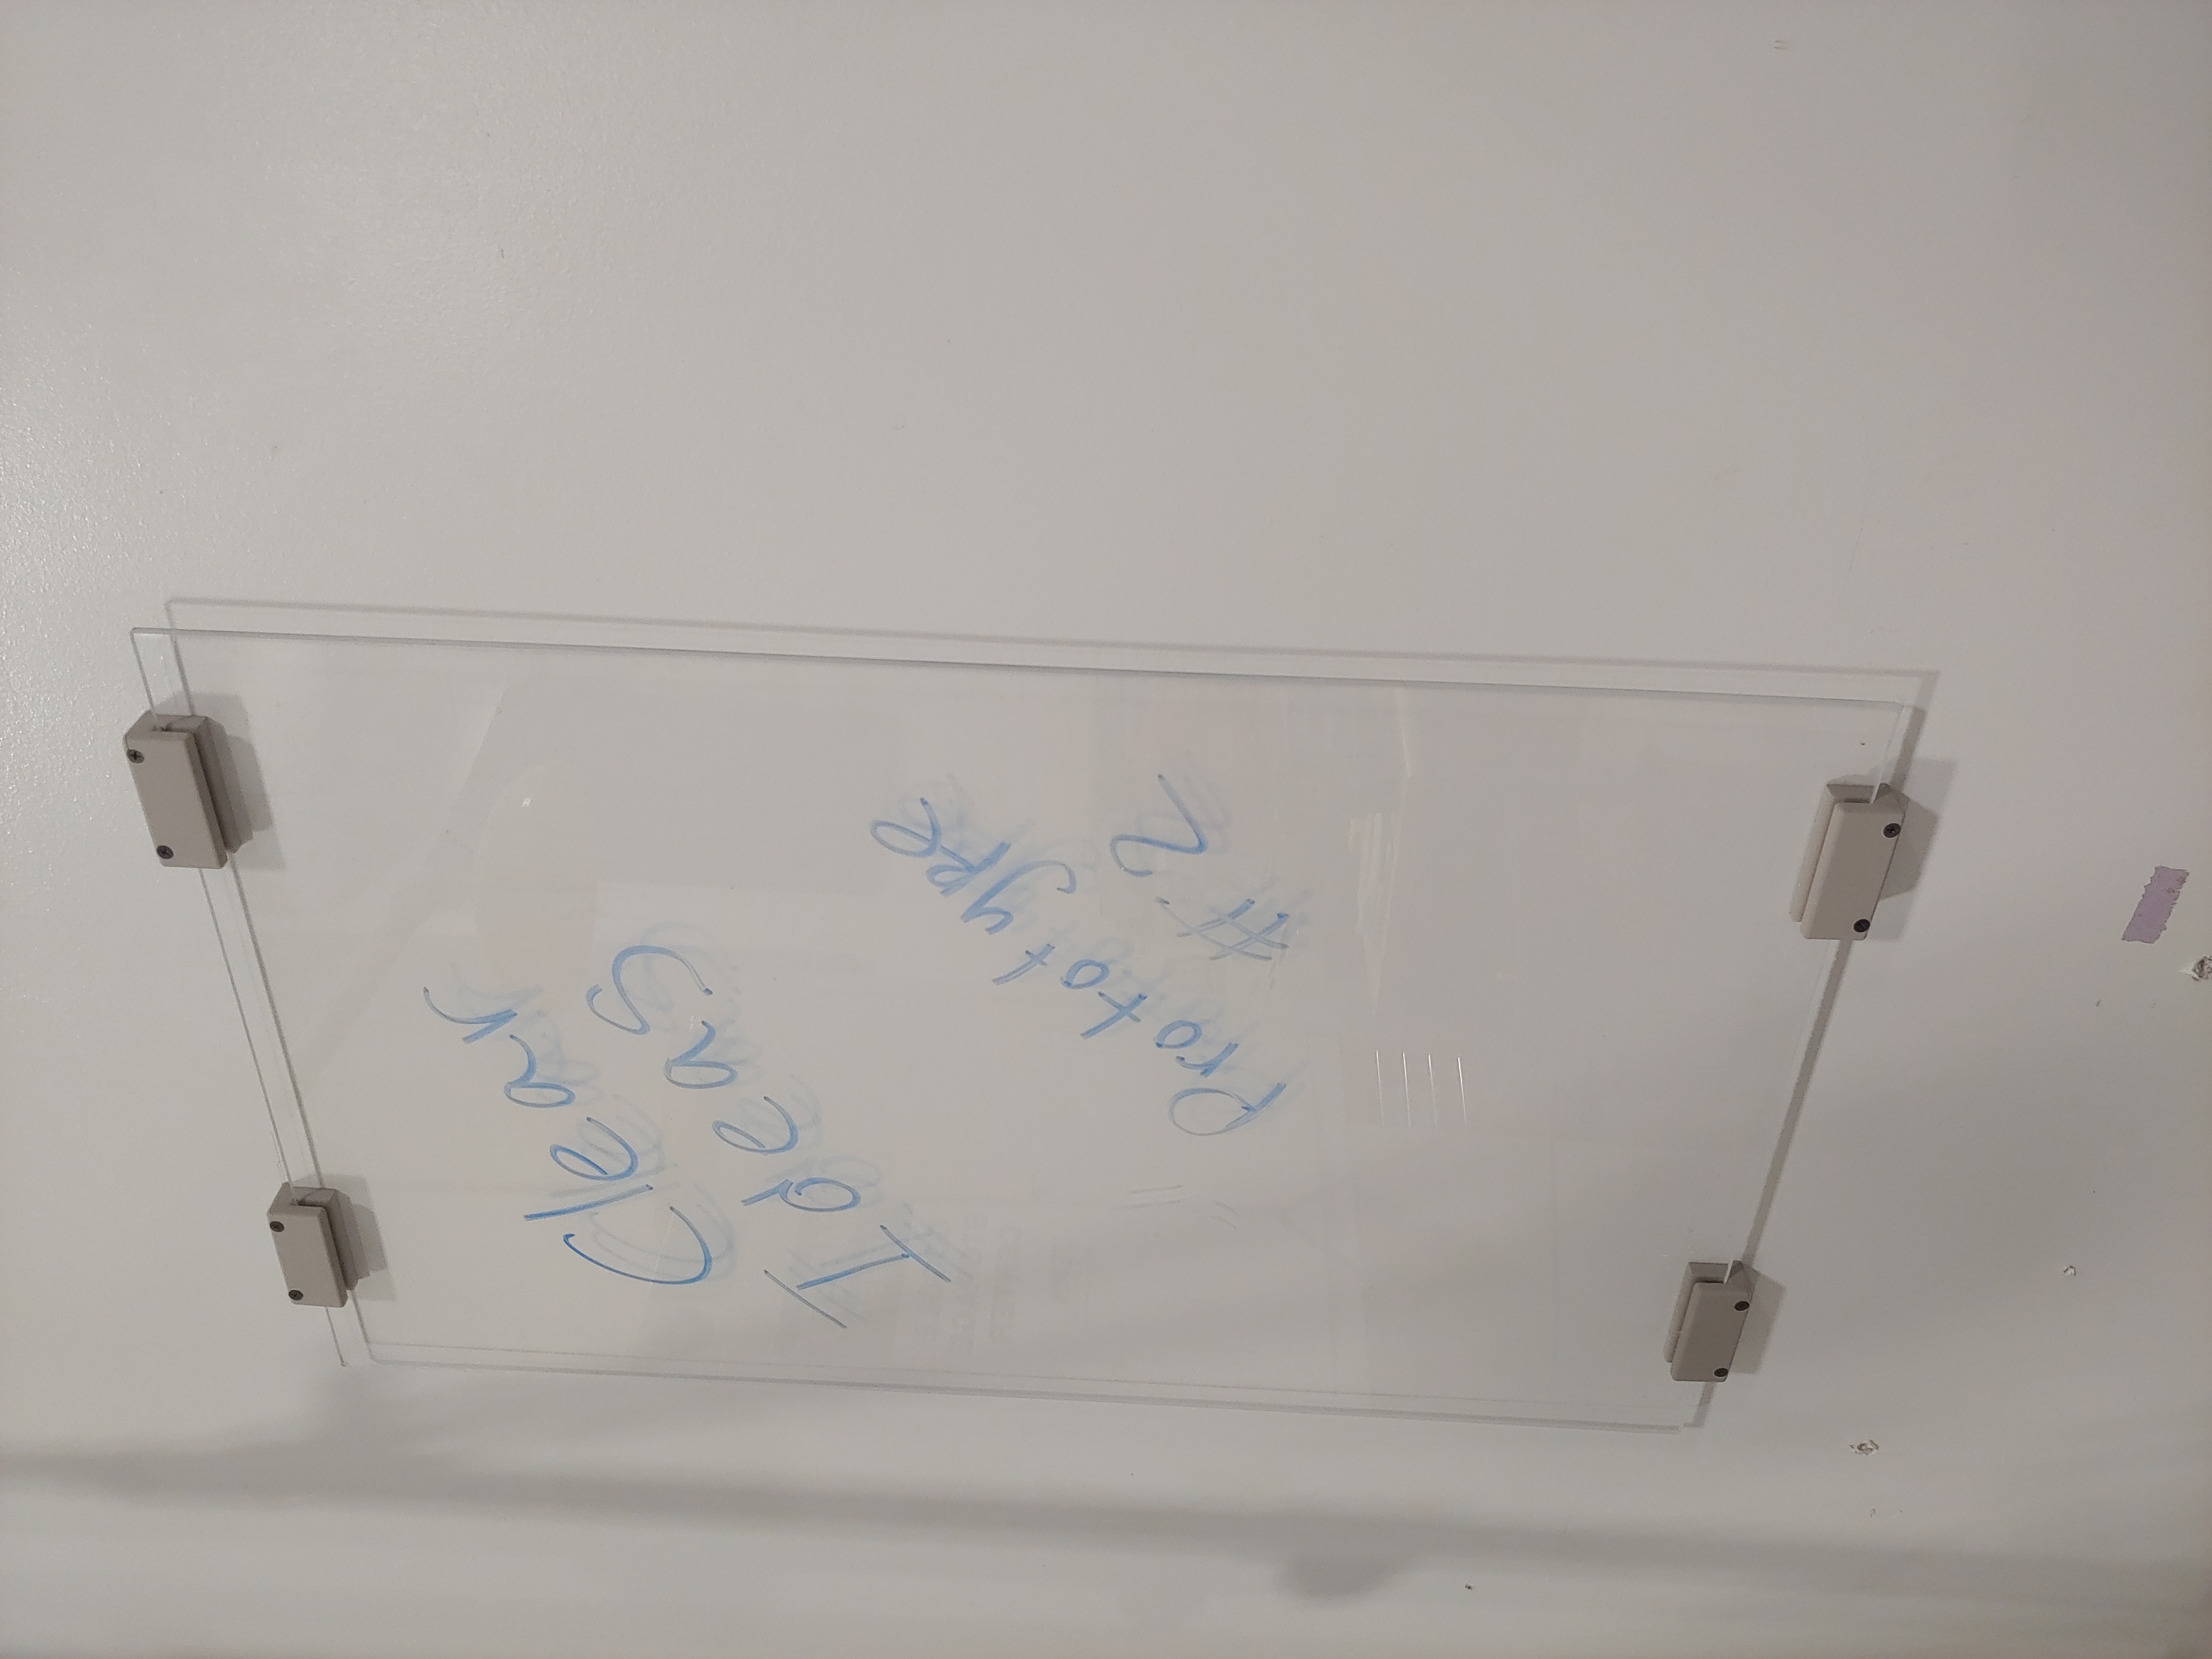 Clear
Ideas
Prototype
#2